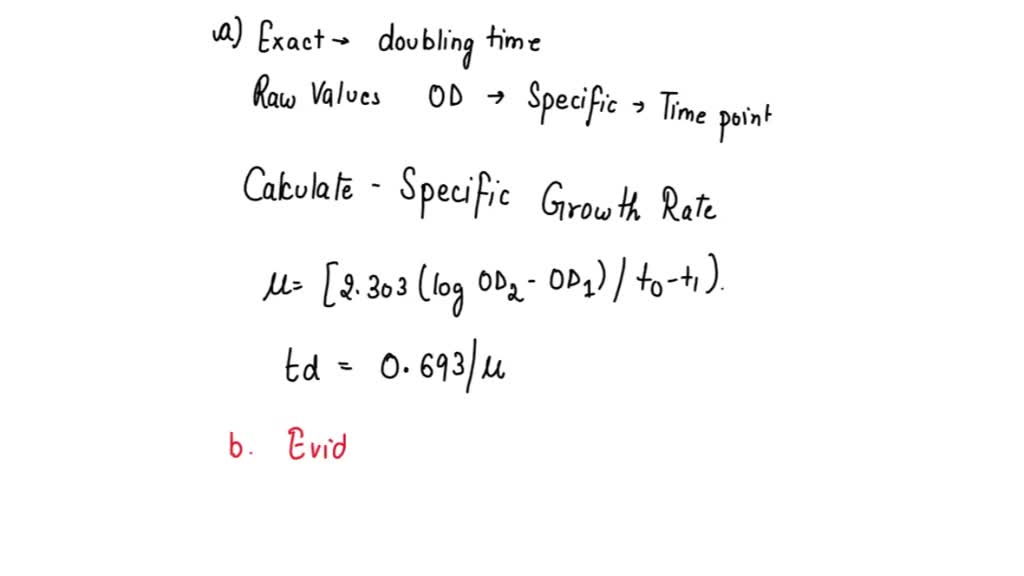 a) Exact → doubling time
Raw Values OD → Specific → Time point
Calculate - Specific Growth Rate
μ= [2.303 (log OD₂ - OD₁) / t₀-t₁).
td = 0.693/μ
b. Evid